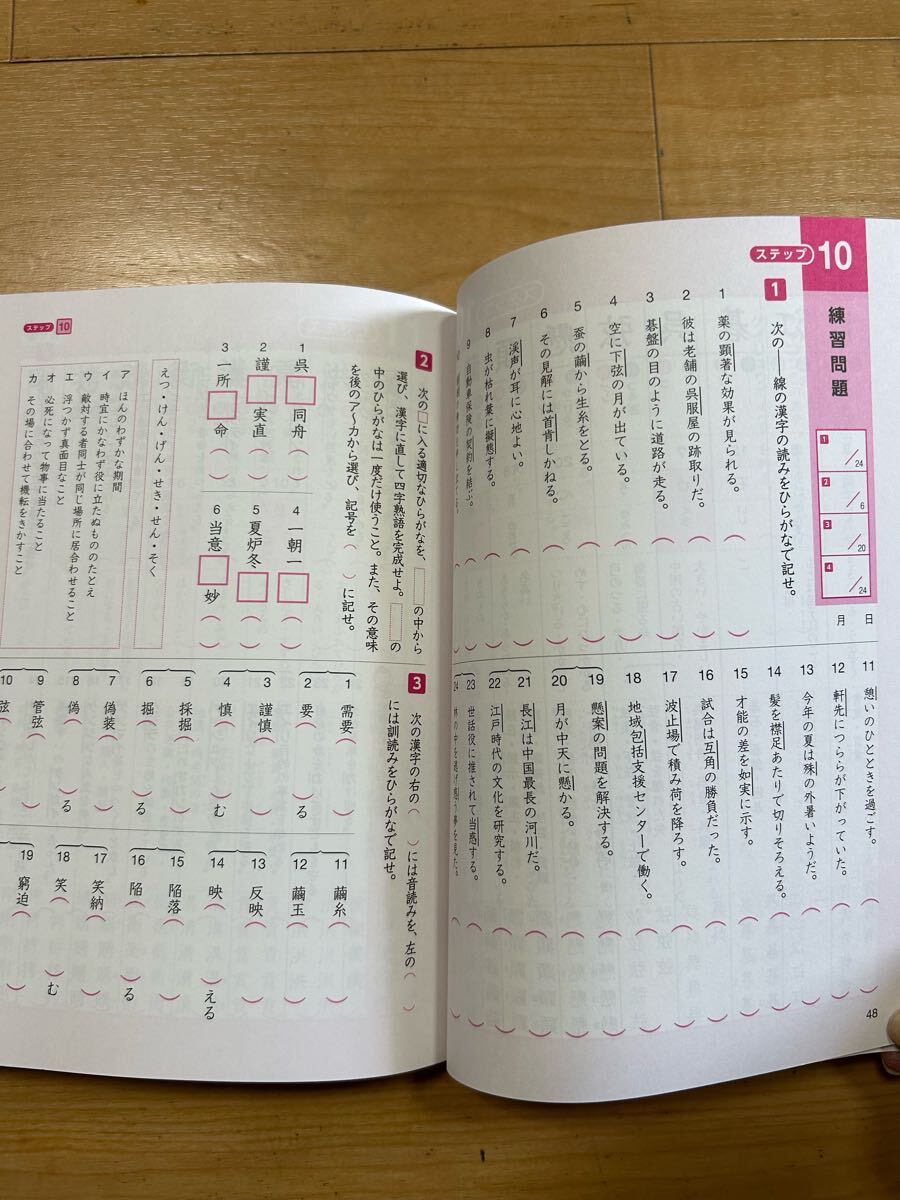 ステップ 10 練習問題
1 /24
2 /6
3 /20
4 /24
月 日
1 次の――線の漢字の読みをひらがなで記せ。
1 薬の顕著な効果が見られる。（ ）
2 彼は老舗の呉服屋の跡取りだ。（ ）
3 碁盤の目のように道路が走る。（ ）
4 空に下弦の月が出ている。（ ）
5 蚕の繭から生糸をとる。（ ）
6 その見解には首肯しかねる。（ ）
7 渓声が耳に心地よい。（ ）
8 虫が枯れ葉に擬態する。（ ）
9 自動車保険の契約を結ぶ。（ ）
11 憩いのひとときを過ごす。（ ）
12 軒先につららが下がっていた。（ ）
13 今年の夏は殊の外暑いようだ。（ ）
14 髪を襟足あたりで切りそろえる。（ ）
15 才能の差を如実に示す。（ ）
16 試合は互角の勝負だった。（ ）
17 波止場で積み荷を降ろす。（ ）
18 地域包括支援センターで働く。（ ）
19 懸案の問題を解決する。（ ）
20 月が中天に懸かる。（ ）
21 長江は中国最長の河川だ。（ ）
22 江戸時代の文化を研究する。（ ）
23 世話役に推されて当惑する。（ ）
24
48
ステップ 10
2 次の□に入る適切なひらがなを、 の中から
選び、漢字に直して四字熟語を完成せよ。 の
中のひらがなは一度だけ使うこと。また、その意味
を後のア〜カから選び、記号を（ ）に記せ。
1 呉□同舟（ ）
2 謹□実直（ ）
3 一所□命（ ）
4 一朝一□（ ）
5 夏炉冬□（ ）
6 当意□妙（ ）
えつ・けん・げん・せき・せん・そく
ア ほんのわずかな期間
イ 時宜にかなわず役に立たぬもののたとえ
ウ 敵対する者同士が同じ場所に居合わせること
エ 浮つかず真面目なこと
オ 必死になって物事に当たること
カ その場に合わせて機転をきかすこと
3 次の漢字の右の（ ）には音読みを、左の（ ）
には訓読みをひらがなで記せ。
1 需要（ ）
2 要（ ）る
3 謹慎（ ）
4 慎（ ）む
5 採掘（ ）
6 掘（ ）る
7 偽装（ ）
8 偽（ ）る
9 管弦（ ）
10 弦（
11 繭糸（ ）
12 繭玉（ ）
13 反映（ ）
14 映（ ）える
15 陥落（ ）
16 陥（ ）る
17 笑納（ ）
18 笑（ ）む
19 窮迫（ ）